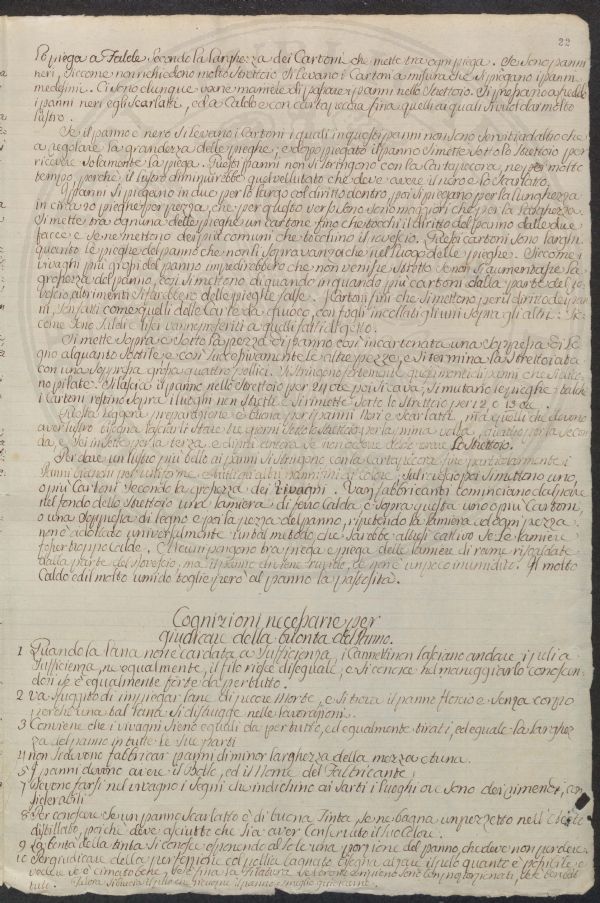 22
si piega a Falde secondo la larghezza dei Cartoni che mette tra ogni piega. Se sono panni
neri, siccome non richiedono molto strettoio si levano i Cartoni a misura che si piegano i panni
medesimi. Ci sono dunque varie maniere di passare i panni nello Strettoio. Si preparano a freddo
i panni neri e gli Scarlatti, ed a Caldo e con carta pecora fina quelli ai quali si vuol dar molto
lustro.
Se il panno è nero si levano i Cartoni i quali in questi panni non sono serviti ad altro che
a regolare la grandezza delle pieghe, e dopo piegato il panno si mette sotto lo Strettoio per
ricevere solamente la piega. Questi panni non si stringono con la Carta pecora, ne per molto
tempo, perchè il lustro diminuirebbe quel vellutato che deve avere il nero e lo Scarlatto.
I panni si piegano in due per lo largo col diritto dentro, poi si piegano per la lunghezza
in circa 20 pieghe per pezza, che per questo verso sono maggiori che per la larghezza.
Si mette tra ognuna delle pieghe un cartone fino che tocchi il diritto del panno dalle due
facce e se ne mettono dei più comuni che tocchino il rovescio. Questi cartoni sono larghi
quanto le pieghe del panno che non li sopravanza che nel luogo delle pieghe. Siccome i
vivagni più grossi del panno impedirebbero che non venisse stretto se non si aumentasse la
grossezza del panno, così si mettono di quando in quando più cartoni dalla parte del ro-
vescio altrimenti si farebbero delle pieghe false. I Cartoni fini che si mettono per il diritto dei pan-
ni, son fatti come quelli delle Carte da giuoco, con fogli incollati gli uni sopra gli altri. Sic-
come sono sodi e lisci vanno preferiti a quelli fatti di getto.
Si mette sopra e sotto la pezza di panno così incartonata una soppressa di le-
gno alquanto sottile e così successivamente le altre pezze, e si termina la strettoiata
con una soppressa grossa quattro pollici. Si stringono fortemente questi monti di panni che si chia-
no pilate. Si lascia il panno nello Strettoio per 24 ore poi si cava, si mutano le pieghe, talchè
i Cartoni restino sopra i luoghi non stretti e si rimette sotto lo Strettoio per 12 o 15 ore.
Questa leggera preparazione è buona per i panni Neri e Scarlatti, ma quelli che devono
aver lustro bisogna lasciarli stare tre giorni sotto lo strettoio per la prima volta, quattro per la secon-
da, poi sei per la terza, e di più ancora se non deve avere lo Strettoio.
Per dare un lustro più bello ai panni si stringono con la Carta pecora fine particolarmente i
panni bianchi per uniforme e tutti gli altri panni fini di colore, sul rovescio poi si mettono uno,
o più Cartoni secondo la grossezza dei vivagni. Vari fabbricanti cominciano dal porre
nel fondo dello Strettoio una lamiera di ferro Calda, e sopra questa uno o più Cartoni
o una Soppressa di legno e poi la pezza del panno, ripetendo la lamiera ad ogni pezza.
non è adottato universalmente un tal metodo che sarebbe assai cattivo se le lamiere
fossero troppo Calde. Alcuni pongono tra piega e piega delle lamiere di rame riscaldate
dalla parte del rovescio, ma il panno diviene ruvido, se non è un poco inumidito. Il molto
Caldo ed il molto umido toglie però al panno la pastosità.
Cognizioni necessarie per
giudicare della bontà del Panno.
1 Quando la lana non è cardata a sufficienza, i Cannelli non lasciano andare i peli a
sufficienza, ne egualmente, il filo riesce diseguale, e si conosce nel maneggiarlo conoscen-
dosi se è egualmente forte da per tutto.
2 Va fuggito di impiegar lane di pecore Morte, e si trova il panno floscio e senza corpo
perchè una tal lana si distrugge nelle lavorazioni.
3 Conviene che i vivagni sieno eguali da per tutto, ed egualmente tirati, ed eguale la larghez-
za del panno in tutte le sue parti
4 non si devono fabbricar panni di minor larghezza della mezza o tuna.
5 I panni devono avere il Bollo, ed il Nome del Fabbricante.
7 Devono farsi nel vivagno i segni che indichino ai sarti i luoghi ove sono dei rimendi, con-
siderabili
8 Per conoscere se un panno Scarlatto è di buona Tinta se ne bagna un pezzetto nell'Aceto
distillato, poichè deve asciutto che sia aver conservato il suo Colore.
9 La bontà della tinta si conosce esponendo al sole una porzione del panno che deve non perdere
10 Per giudicare della perfezione col pollice bagnato bisogna alzare il pelo quanto è possibile, e
vedere se è cimato bene, se è fina la filatura